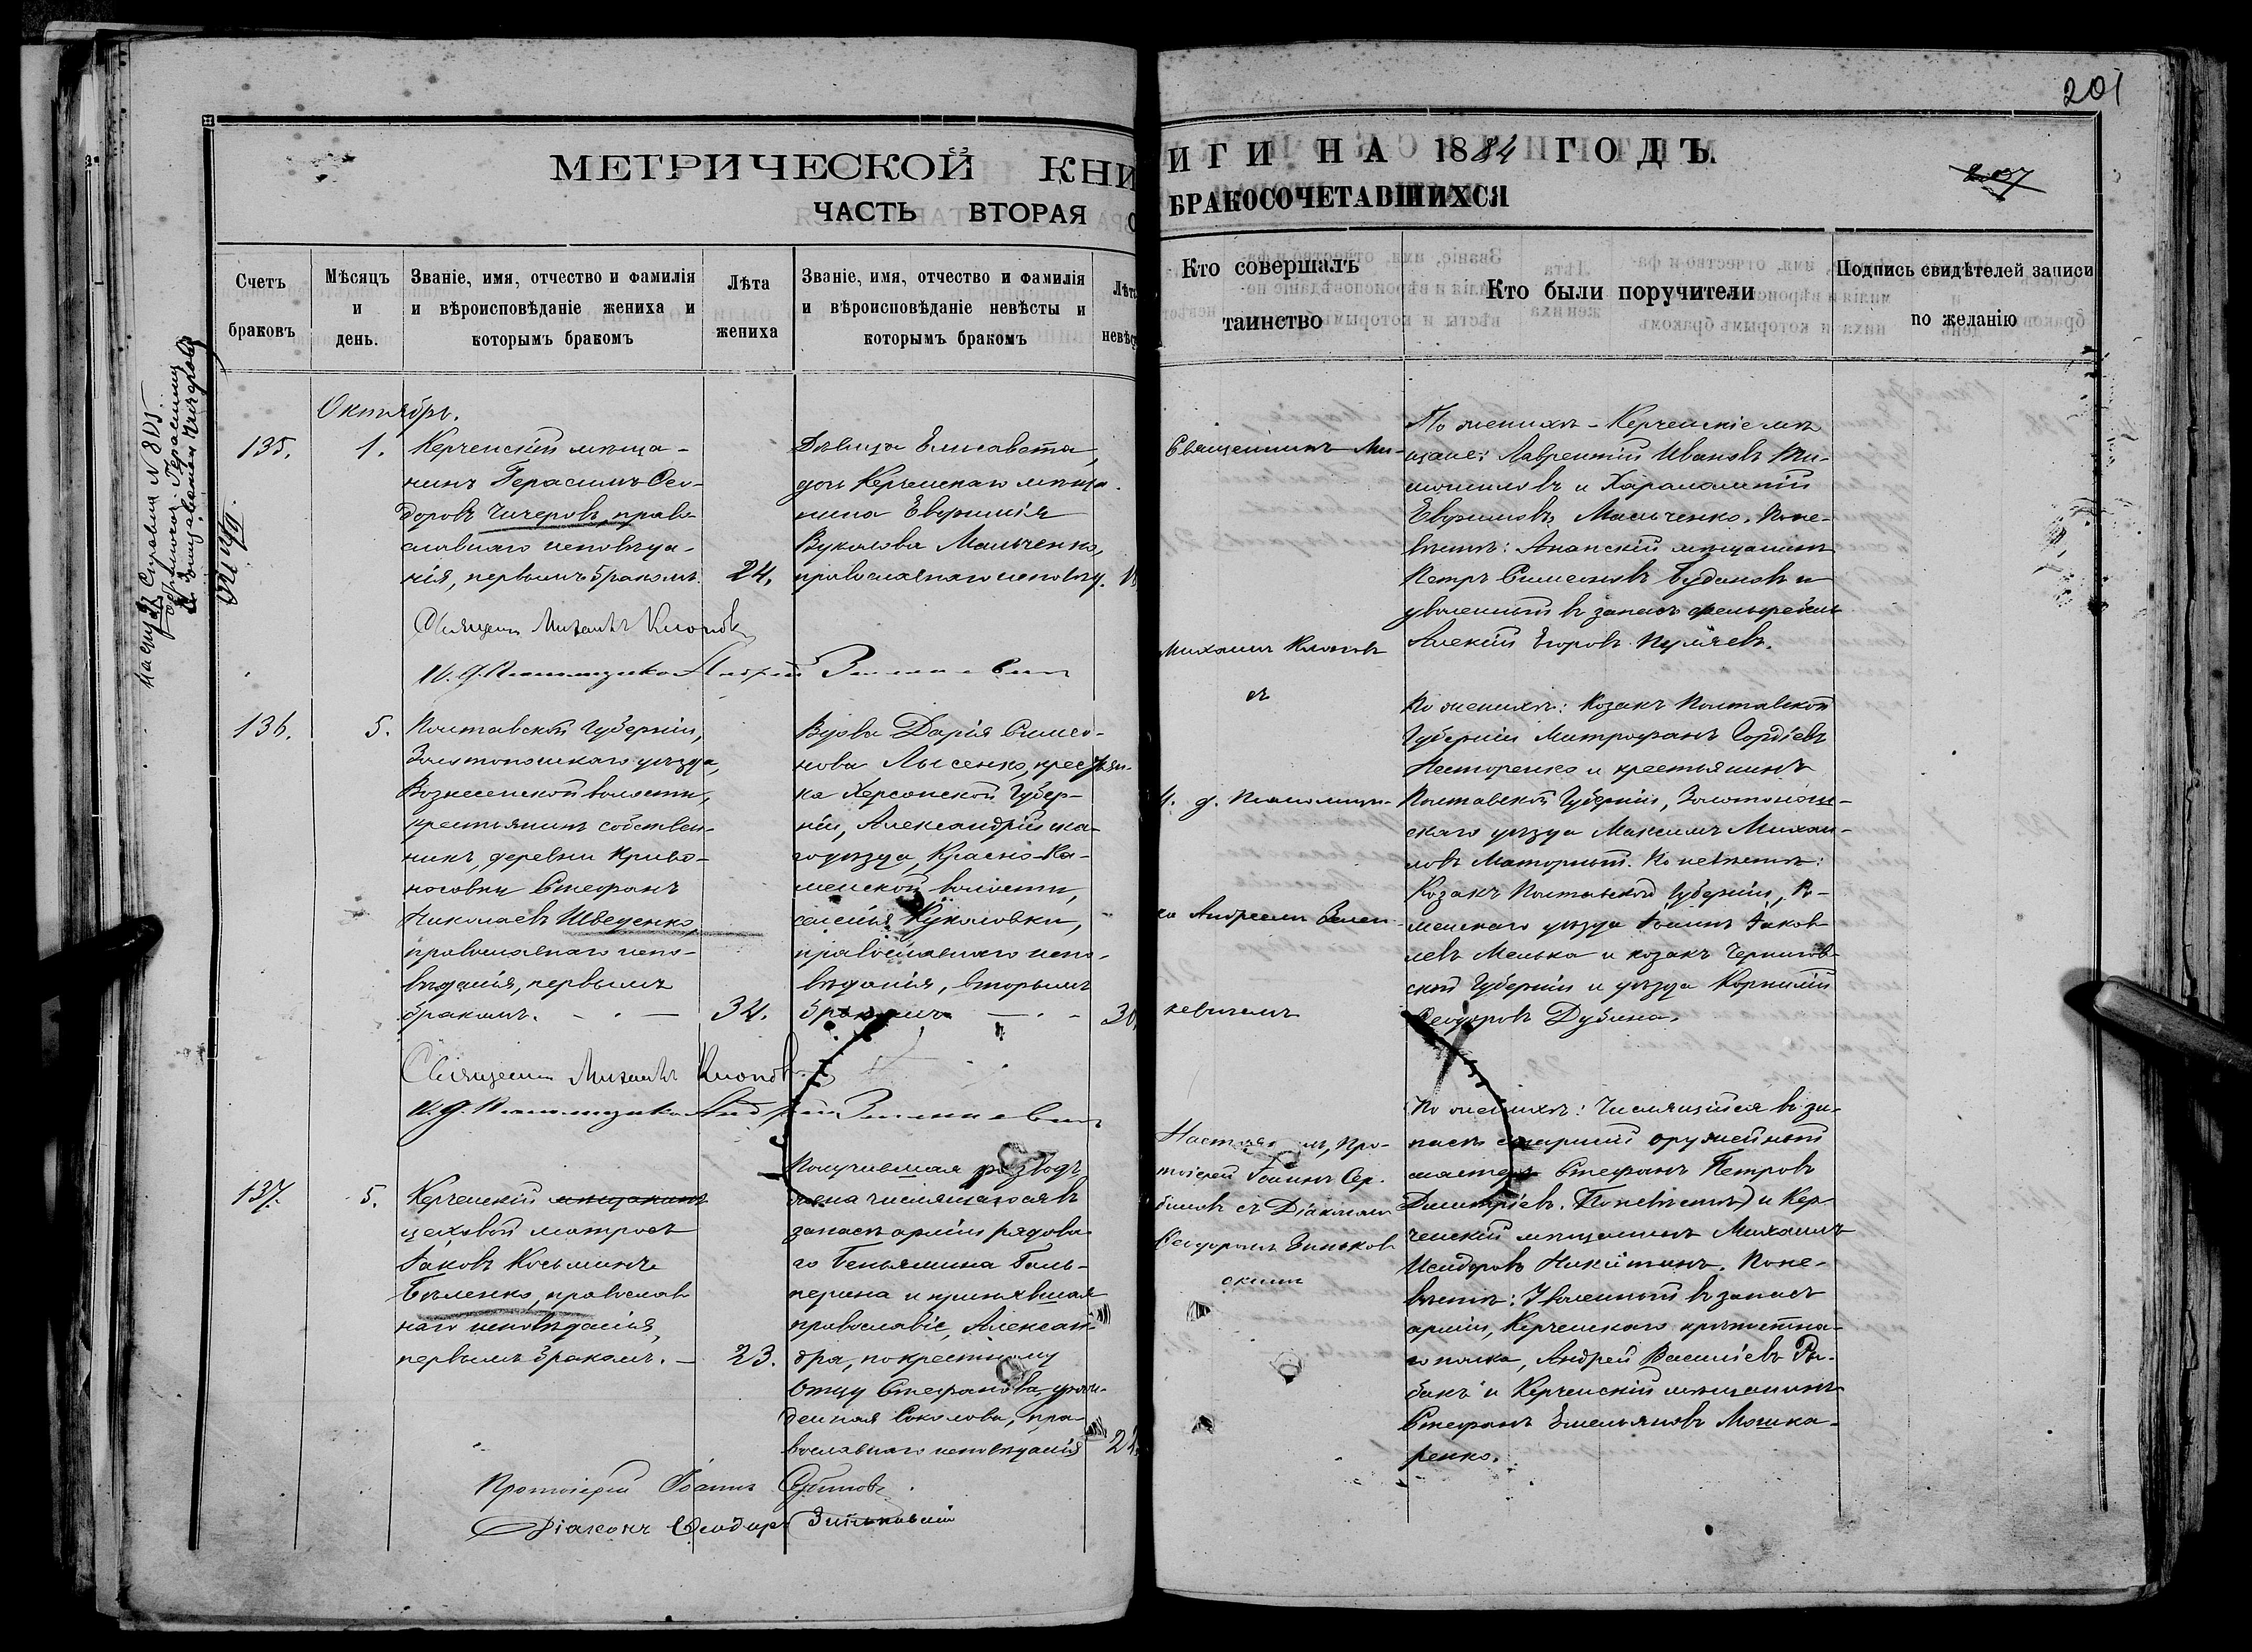 201
МЕТРИЧЕСКОЙ КНИ
ИГИ НА 1884 ГОДЪ
207
ЧАСТЬ ВТОРАЯ О
БРАКОСОЧЕТАВШИХСЯ
Счетъ
браковъ
Мѣсяцъ
и
день.
Званіе, имя, отчество и фамилія
и вѣроисповѣданіе жениха и
которымъ бракомъ
Лѣта
жениха
Званіе, имя, отчество и фамилія
и вѣроисповѣданіе невѣсты и
которымъ бракомъ
Лѣта
невѣс
Кто совершалъ
таинство
Кто были поручители
Подпись свидѣтелей записи
по желанію
Октябрь.
135.
1.
Керченскій мѣща-
нинъ Герасимъ Ѳео-
доровъ Чичеровъ, право-
славнаго исповѣда-
нія, первымъ бракомъ.
24.
Дѣвица Елисавета,
дочь Керченскаго мѣща-
нина Евфимія
Вуколова Мальченко,
православнаго исповѣд.
Священн Михаилъ Клоповъ
И. д. Псаломщика Андрей
Священникъ Ми-
хаилъ Клоповъ
съ
И. д. Псаломщи-
ка Андреемъ Зелен
кевичемъ
По женихѣ - Керченскіе мѣ
щане: Лаврентій Ивановъ
и Харалампій
Евфимовъ Мальченко. По не-
вѣстѣ: Анапскій мѣщанинъ
Петръ Симеоновъ Будановъ и
уволенный въ запасъ фельдфебель
Алексій Егоровъ
136.
5.
Полтавской Губерніи,
Золотоношскаго уѣзда,
Вознесенской волости,
крестьянинъ собствен-
никъ, деревни Криво-
носовки Стефанъ
Николаевъ Шведенко,
православнаго испо-
вѣданія, первымъ
бракомъ.
34.
Вдова Дарія Симео-
нова Лысенко, крестьян-
ка Херсонской Губер-
ніи, Александрійска-
го уѣзда, Красно-Ка-
менской волости,
селенія Куколовки,
православнаго испо-
вѣданія, вторымъ
бракомъ
30
Священн Михаилъ Клоповъ
И. д. Псаломщика Андрей
По женихѣ: Козакъ Полтавской
Губерніи Митрофанъ Гордіевъ
Нестеренко и крестьянинъ
Полтавской Губерніи, Золотонош-
скаго уѣзда Максимъ Михаи-
ловъ Моторный. По невѣстѣ:
Козакъ Полтавской Губерніи, Ро-
менскаго уѣзда Іоаннъ Іаков
левъ Мелька и козакъ Чернигов-
ской Губерніи и уѣзда Корнилій
Ѳеодоровъ Дубина.
137.
5.
Керченскій мѣщанинъ
цеховой матросъ
Іаковъ Косьминъ
Бѣленко, православ
наго исповѣданія,
первымъ бракомъ.
23.
Получившая разводъ
жена числящагося въ
запасѣ арміи рядова
го Беньямина Галь-
перина и принявшая
православіе, Алексан-
дра, по крестному
отцу Стефанова, урож-
денная Соколова, пра-
вославнаго исповѣданія
24
Протоіерей Іоаннъ Сербиновъ
Діаконъ Ѳеодоръ Зиньковскій
Настоятель, Про-
тоіерей Іоаннъ Сер-
биновъ съ Діакономъ
Ѳеодоромъ Зиньков
скимъ
По женихѣ: Числящійся въ за-
пасѣ старшій оружейный
мастеръ Стефанъ Петровъ
Димитріевъ. (По невѣстѣ) и Кер-
ченскій мѣщанинъ Михаилъ
Исидоровъ Никитинъ. По не-
вѣстѣ: Уволенный въ запасъ
арміи, Керченскаго крѣпостна-
го полка, Андрей Василіевъ Ры-
бакъ и Керченскій мѣщанинъ
Стефанъ Емельяновъ Мошка-
ренко.